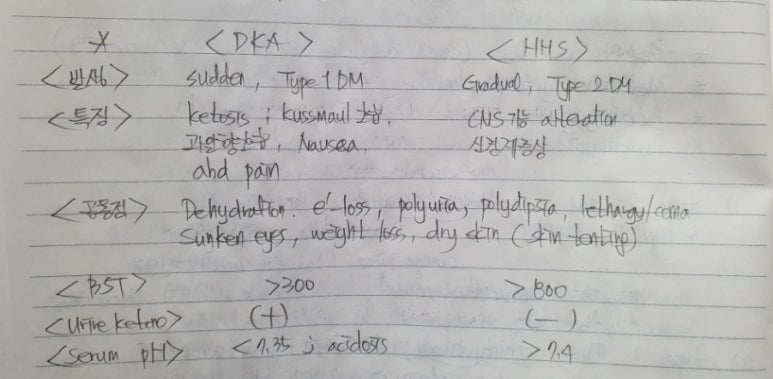 * <DKA> <HHS>
<발생> sudden, Type 1 DM Gradual, Type 2 DM
<특징> ketosis ; kussmaul 호흡, CNS기능 alteration
과일향호흡, Nausea, 신경계증상
abd pain
<공통점> Dehydration. e'-loss, polyuria, polydipsia, lethargy/coma
Sunken eyes, weight loss, dry skin (skin tenting)
<BST> >300 >800
<Urine keto> (+) (-)
<Serum pH> <7.35 ; acidosis >7.4